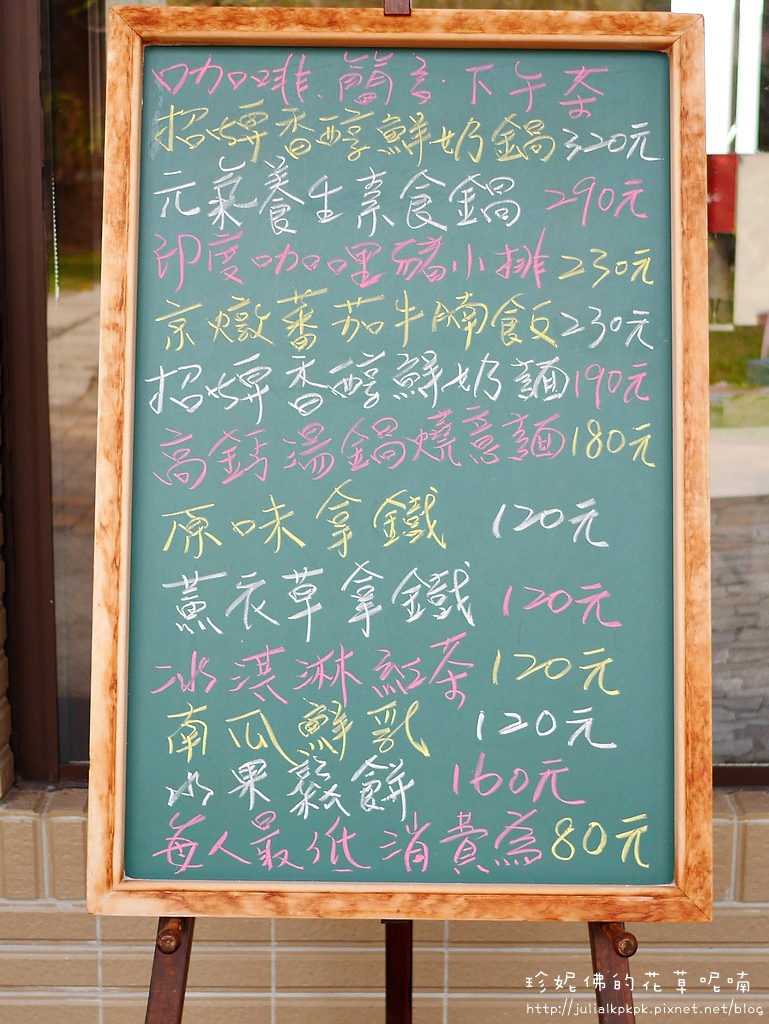 咖啡.簡餐.下午茶
招牌香醇鮮奶鍋320元
元氣養生素食鍋 290元
印度咖哩豬小排230元
京燉蕃茄牛腩飯230元
招牌香醇鮮奶麵190元
高鈣湯鍋燒意麵180元
原味拿鐵 120元
薰衣草拿鐵 120元
冰淇淋紅茶 120元
南瓜鮮乳 120元
水果鬆餅 160元
每人最低消費為80元
珍妮佛的花草呢喃
http://julialkpkpk.pixnet.net/blog